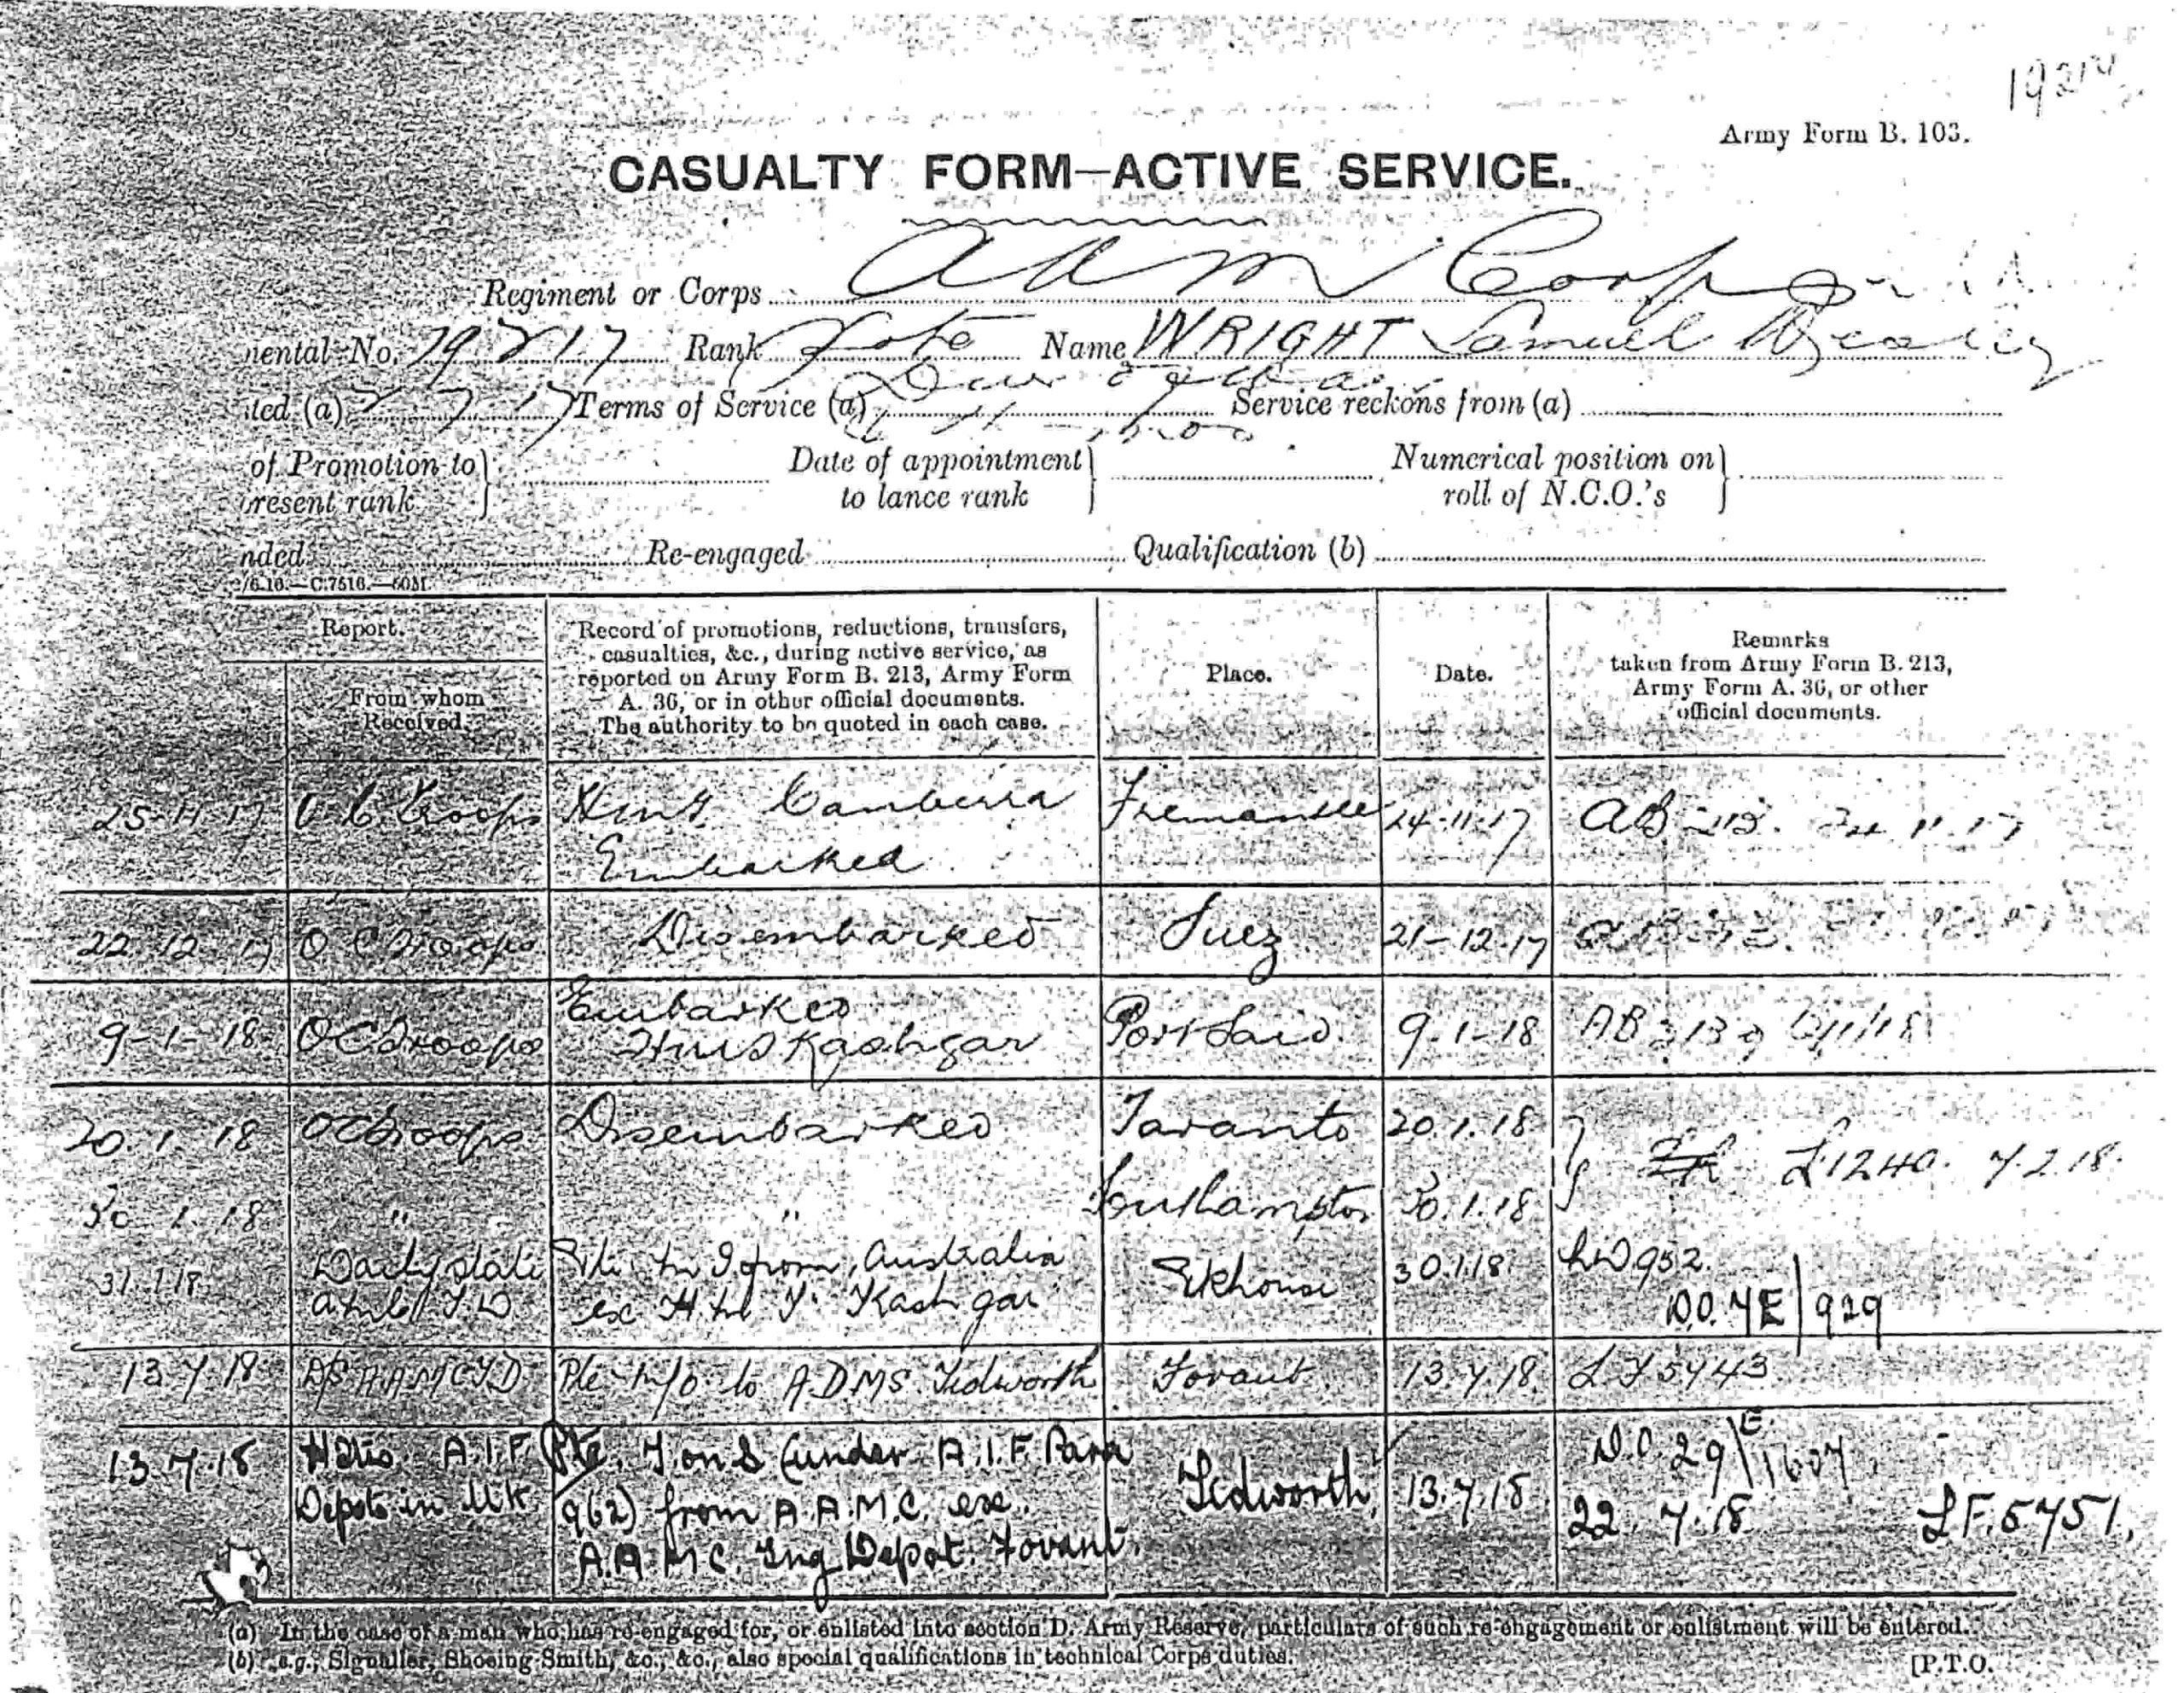 Army Form B. 103.
CASUALTY FORM—ACTIVE SERVICE.
Regiment or Corps A A M Corps
mental No. 19217 Rank Pte Name WRIGHT Samuel
ted (a) 7.17 Terms of Service (a) Service reckons from (a)
of Promotion to present rank } Date of appointment to lance rank } Numerical position on roll of N.C.O.'s }
nded Re-engaged Qualification (b)
/6.16.—C.7516.—
Report.
From whom Received.
Record of promotions, reductions, transfers,
casualties, &c., during active service, as
reported on Army Form B. 213, Army Form
A. 36, or in other official documents.
The authority to be quoted in each case.
Place.
Date.
Remarks
taken from Army Form B. 213,
Army Form A. 36, or other
official documents.
25-11-17 O C Troops Hmt Canberra Fremantle 24-11-17 AB 213. 11.17
Embarked
22.12.17 O C Troops Disembarked Suez 21-12-17
9-1-18 OC Troops Embarked Port Said 9-1-18 AB 213
HMS Kashgar
20.1.18 OC Troops Disembarked Taranto 20.1.18 } L1240. 7.2.18.
30.1.18 " " Southampton 30.1.18
31.1.18 Daily state from Australia 30.1.18 952.
ex Kashgar D.O. 4E/929
13.7.18 AAMCTD Pte to ADMS. Tidworth Fovant 13.7.18 LF5743
13.7.18 Hdrs. A.I.F. Pte. T. on S (under A.I.F. Para Tidworth 13.7.18 D.O. 29E/1607
Depots in UK 962) from A.A.M.C. ex. 22.7.18 LF.5751.
A.A.M.C. Tng Depot. Fovant.
(a) In the case of a man who has re-engaged for, or enlisted into section D. Army Reserve, particulars of such re-engagement or enlistment will be entered.
(b) e.g., Signaller, Shoeing Smith, &c., &c., also special qualifications in technical Corps duties.
[P.T.O.